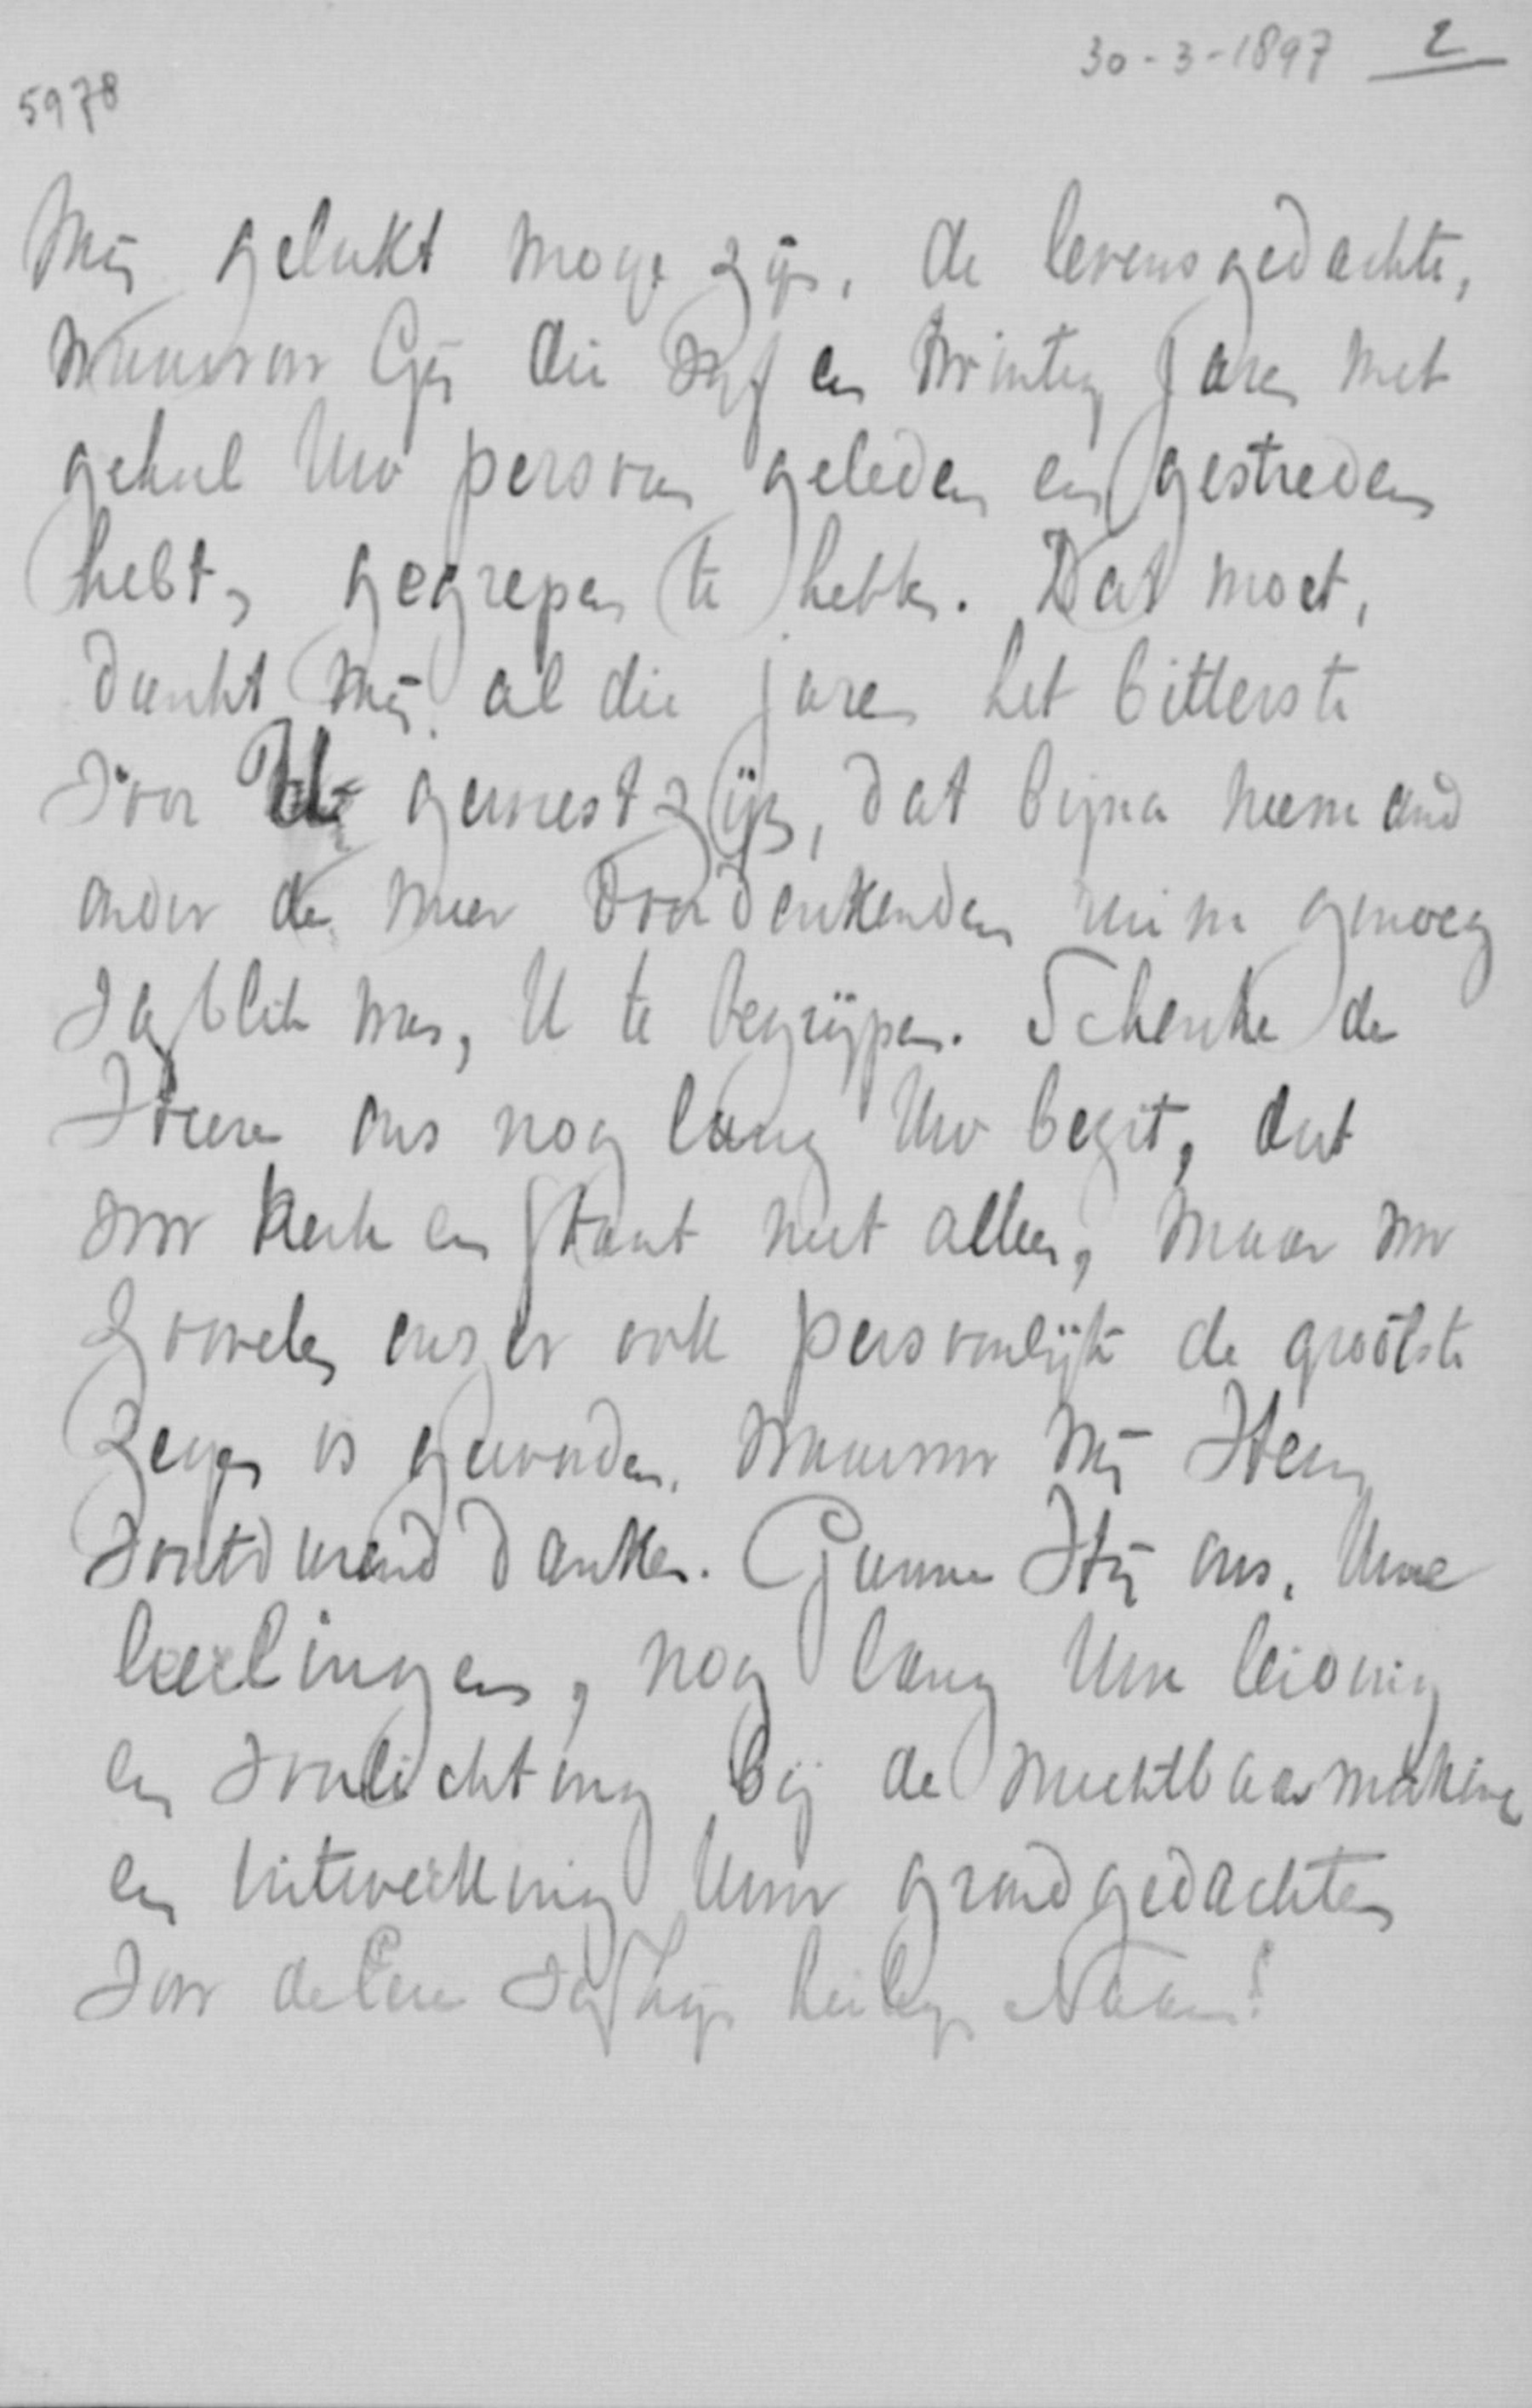 30-3-1897 2
5978
mij gelukt moge zijn, de levensgedachte,
waarvoor Gij die vijf en twintig jaren met
geheel Uw persoon geleden en gestreden
hebt, gegrepen te hebben. Dat moet,
dunkt mij al die jaren het bitterste
voor U geweest zijn, dat bijna niemand
onder de meer doordenkenden ruim genoeg
van blik was, U te begrijpen. Schenke de
Heere ons nog lang Uw bezit, dat
voor kerk en staat niet alleen, maar voor
zoovelen onzer ook persoonlijk de grootste
zegen is geworden, waarvoor wij Hem
voortdurend danken. Gunne Hij ons, Uwe
leerlingen, nog lang Uwe leiding
en voorlichting bij de vruchtbaarmaking
en uitwerking Uwer grondgedachten
voor de Eere van Zijn heiligen Naam!